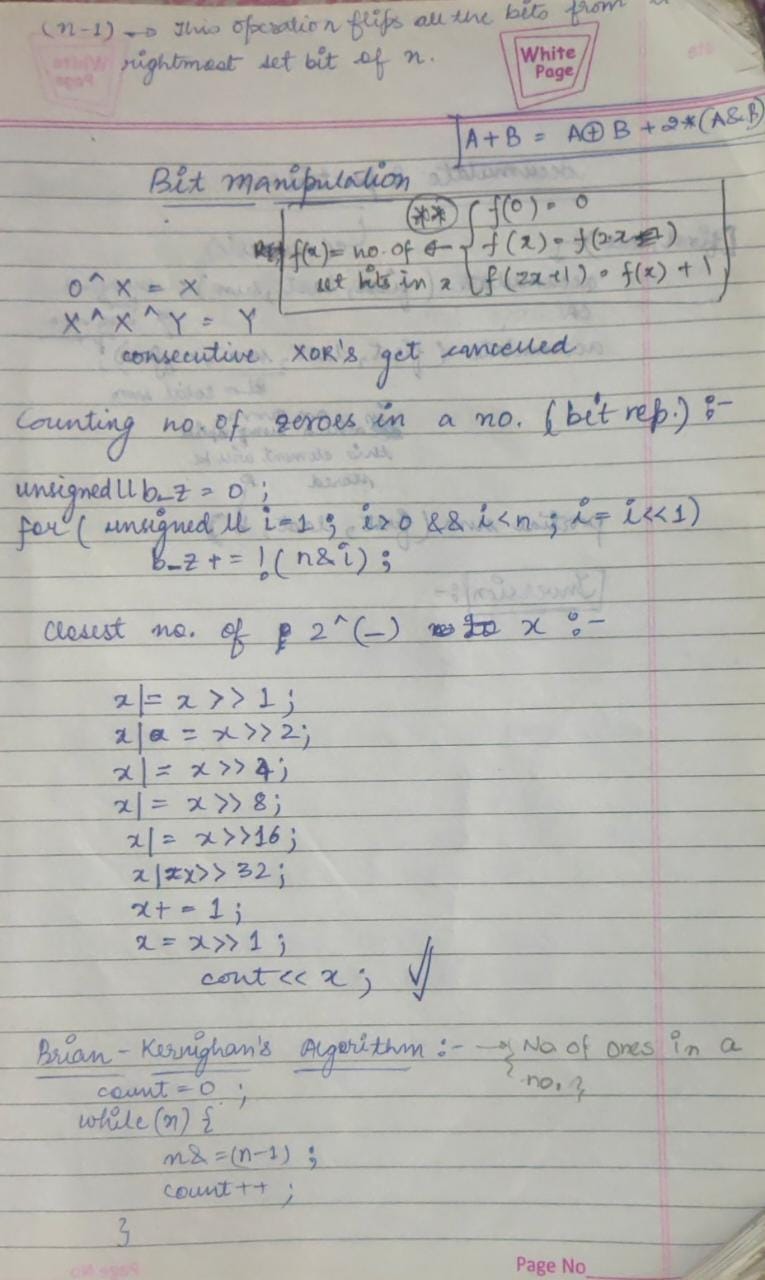 (n-1) → This operation flips all the bits from
rightmost set bit of n.
White
Page
A+B = A⊕B + 2*(A&B)
Bit manipulation
(**) { f(0) = 0
f(x) = no. of ← f(x) = f(2x)
set bits in x f(2x+1) = f(x) + 1
0^X = X
X^X^Y = Y
consecutive XOR's get cancelled
Counting no. of zeroes in a no. (bit rep.) :-
unsigned ll b_z = 0;
for( unsigned ll i=1; i>0 && i<n; i = i<<1)
b_z += !(n&i);
Closest no. of 2^(_) to x :-
x|= x >> 1;
x| = x>>2;
x|= x>>4;
x|= x>>8;
x|= x>>16;
x|=x>>32;
x+ = 1;
x = x>>1;
cout << x;
Brian-Kernighan's Algorithm :- → { No. of ones in a
no. }
count = 0;
while (n) {
n& =(n-1);
count++;
}
Page No